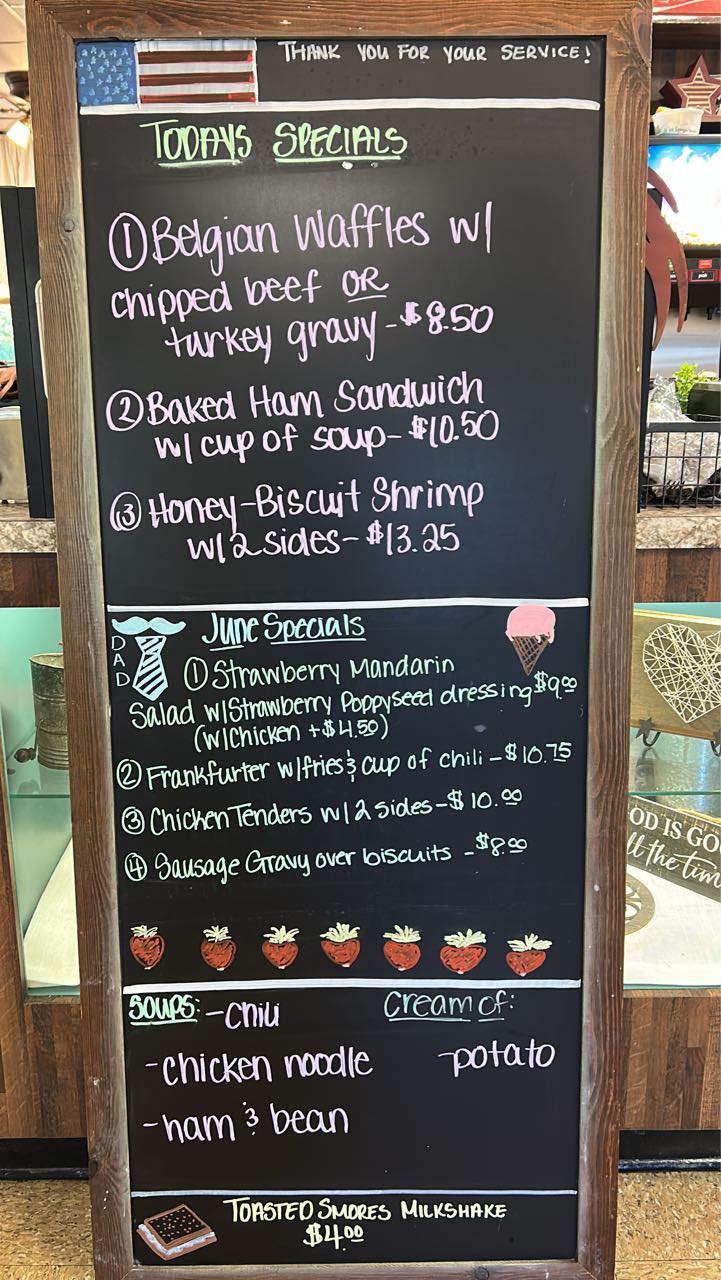 THANK YOU FOR YOUR SERVICE!
TODAYS SPECIALS
① Belgian Waffles w/
chipped beef OR
turkey gravy - $8.50
② Baked Ham Sandwich
w/ cup of soup - $10.50
③ Honey-Biscuit Shrimp
w/ 2 sides - $13.25
DAD
June Specials
① Strawberry Mandarin
Salad w/Strawberry Poppyseed dressing $9.00
(w/Chicken +$4.50)
② Frankfurter w/fries & cup of chili - $10.75
③ Chicken Tenders w/ 2 sides - $10.00
④ Sausage Gravy over biscuits - $8.00
SOUPS: - Chili
- chicken noodle
- ham & bean
Cream of:
- potato
TOASTED SMORES MILKSHAKE
$4.00
OD IS GO
ll the tim